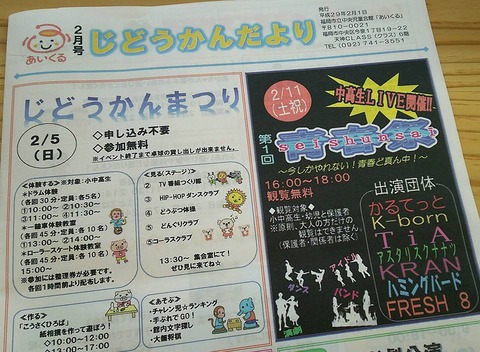 2月号
あいくる
じどうかんだより
発行
平成29年2月1日
福岡市立中央児童会館「あいくる」
〒810-0021
福岡市中央区今泉1丁目19-22
天神CLASS(クラス)6階
TEL (092) 741-3551
じどうかんまつり
2/5
(日)
◇申し込み不要
◇参加無料
※イベント終了まで卓球の貸し出しが出来ません。
≪体験する≫※対象:小中高生
*ドラム体験
(各回30分・定員:各5名)
①10:00~ ②10:30~
③11:00~ ④11:30~
*一輪車体験教室
(各回・定員:各10名)
①13:00~ ②14:00~
*ローラースケート体験教室
(各回・定員:各10名)
15:00~
※参加には整理券が必要です。
各回1時間前より配布します。
≪見る(ステージ)≫
① TV番組つくり館
② HIP-HOPダンスクラブ
③ どうぶつ体操
④ どんぐりクラブ
⑤コーラスクラブ
13:30~ 集会室にて!
ぜひ見に来てね☆
≪作る≫
「こうさくひろば」
紙相撲を作って遊ぼう!
◇10:00~12:00
◇13:00~17:00
≪あそぶ≫
・チャレン児☆ランキング
・手ぶれでGO!
・館内文字探し
・大盤将棋
2/11
(土祝)
中高生LIVE開催!!
第1回
青春祭
seishunsai
~今しかやれない!青春ど真ん中!~
16:00~18:00
観覧無料
◆観覧対象◆
小中高生・幼児と保護者
※原則、大人の方だけの
観覧はできません。
(保護者・関係者は除く)
ダンス
アイドル
バンド
演劇
出演団体
かるてっと
K-born
TiA
アスタリスクナナツ
KRAN
ハミングバード
FRESH 8